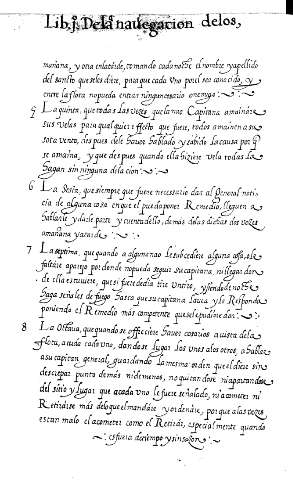 Lib. j. De la nauegacion delos,
mañana, y otra en la tarde, tomando cada noche el nombre y apellido
del sancto que seles diere, para que cada vno por el sea conocido, y
entre la flota no pueda entrar ningun nauio enemigo.
5 La quinta, que todas las vezes que la nao Capitana amainare
sus velas para qualquier effecto que fuere, todos amainen a su
sota vento, despues dele hauer hablado y sabido la causa por que
se amaina, y que despues quando ella hiziere vela todas la
hagan sin ninguna dilacion.
6 La sesta, que siempre que fuere necessario dar al General noti
cia de alguna cosa en que el pueda poner Remedio, lleguen a
hablarle y darle parte y cuenta dello, de mas delas dichas dos vezes
a mañana y a tarde.
7 La septima, que quando a alguna nao le subcediere alguna cosa, o le
faltare aparejo por donde no pueda seguir su capitana, ni llegar don
de ella estuuiere, que si fuere de dia tire vn tiro, y si fuere de noche
haga señales de fuego hasta que su capitana la vea y le Responda
poniendo el Remedio mas competente que sele pudiere dar.
8 La Octaua, que quando se offreciere hauer cosarios a vista dela
flota, acuda cada vno, dandose lugar los vnos alos otros, a hablar
a su capitan general, guardando la mesma orden que el diere sin
discrepar punto de mas ni de menos, no quitandose ni apartandose
del sitio y lugar que a cada vno le fuere señalado, ni acometer ni
Retirarse mas delo que el mandare y ordenare, por que alas vezes
es tan malo el acometer como el Retirar, especialmente quando
es fuera de tiempo y sin sazon.